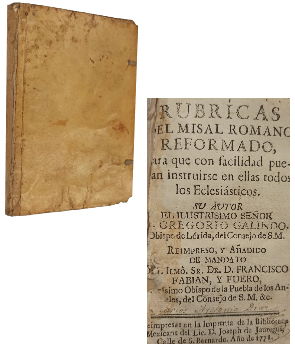 RUBRICAS
DEL MISAL ROMANO
REFORMADO,
para que con facilidad pue-
dan instruirse en ellas todos
los Eclesiásticos.
SU AUTOR
EL ILUSTRISIMO SEÑOR
GREGORIO GALINDO,
Obispo de Lérida, del Consejo de S.M.
REIMPRESO, Y AÑADIDO
DE MANDATO
Illmó. SR. DR. D. FRANCISCO
FABIAN, Y FUERO,
Obispo de la Puebla de los An-
geles, del Consejo de S.M. &c.
Reimpresas en la Imprenta de la Bibliotheca
Mexicana del Lic. D. Joseph de Jauregui,
Calle de S. Bernardo. Año de 1771.